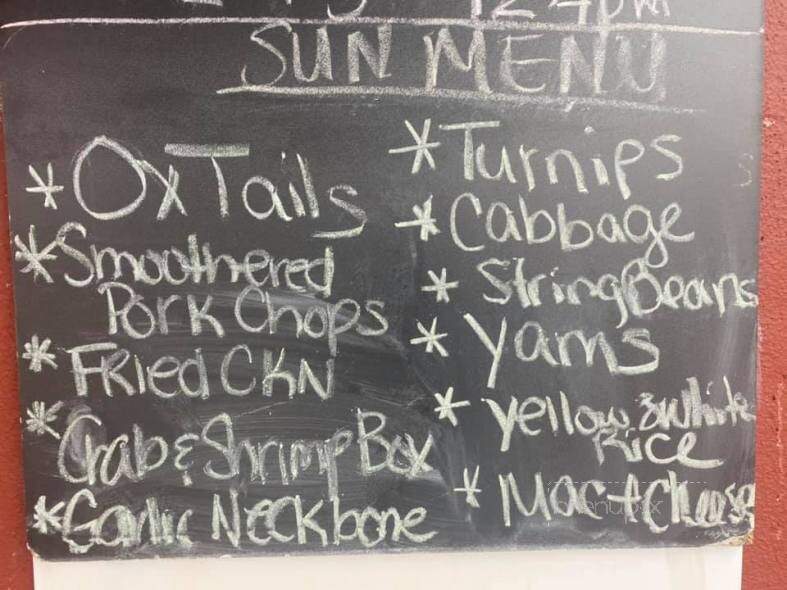 SUN MENU
* OxTails
* Smoothered
Pork Chops
* FRied CKN
* Crab & Shrimp Box
* Garlic Neckbone
* Turnips
* Cabbage
* StringBeans
* Yams
* Yellow & White
Rice
* Mac + Cheese